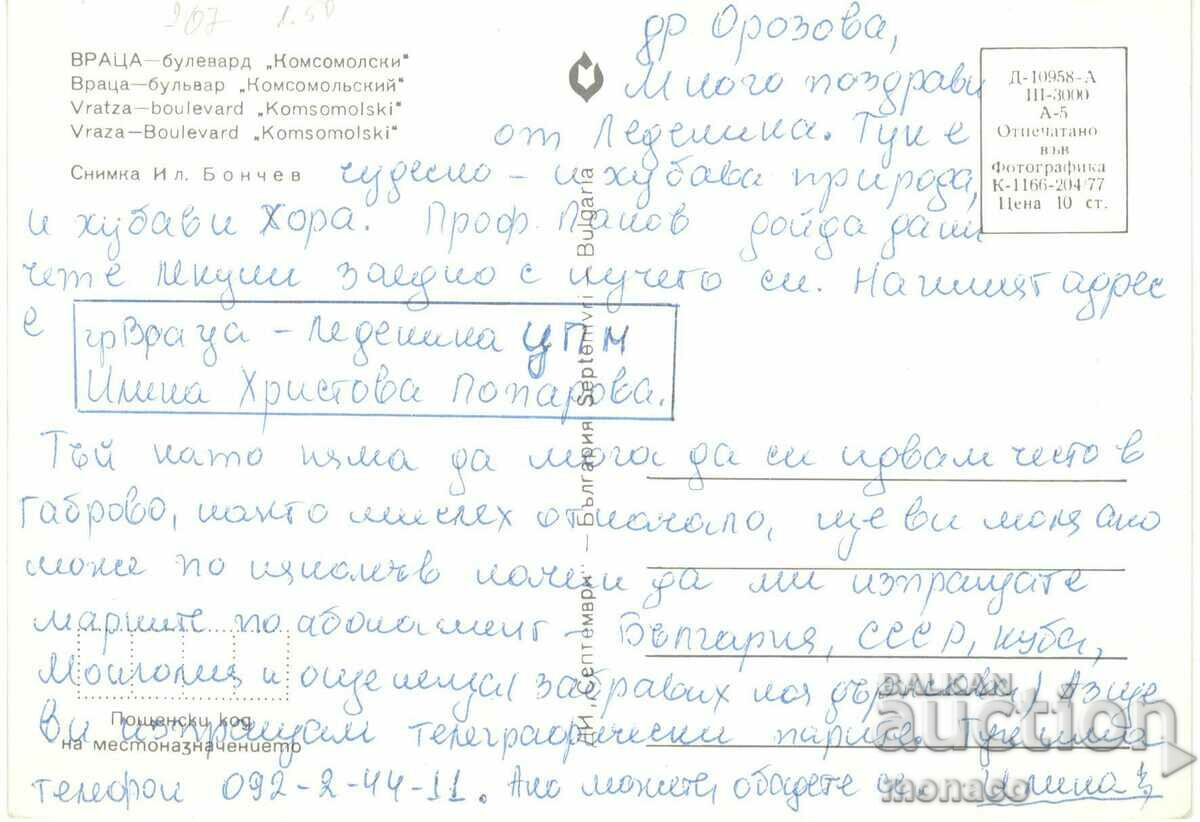 207 1.50
ВРАЦА—булевард „Комсомолски“
Враца—бульвар „Комсомольский“
Vratza—boulevard „Komsomolski“
Vraza—Boulevard „Komsomolski“
Снимка Ил. Бончев
Д-10958-А
III-3000
А-5
Отпечатано
във
Фотографика
К-1166-204/77
Цена 10 ст.
ДИ „Септември“ — България Septemvri Bulgaria
др Орозова,
Много поздрави
от Леденика. Тук е
чудесно – и хубава природа,
и хубави хора. Проф. Панов дойде да ни
чете лекции заедно с кучето си. Нашият адрес
е
гр Враца – Леденика ЦПМ
Илина Христова
Тъй като няма да мога да си идвам често в
Габрово, както мислех отначало, ще ви моля ако
може по някакъв начин да ми изпращате
марките по абонамент – България, СССР, Куба,
Монголия и още някоя забравих коя държава) Аз ще
Ви изпращам телеграфически парите. Тук има
телефон 092-2-44-11. Ако можете, обадете се. Илина
Пощенски код
на местоназначението
BALKAN
auction
monaco